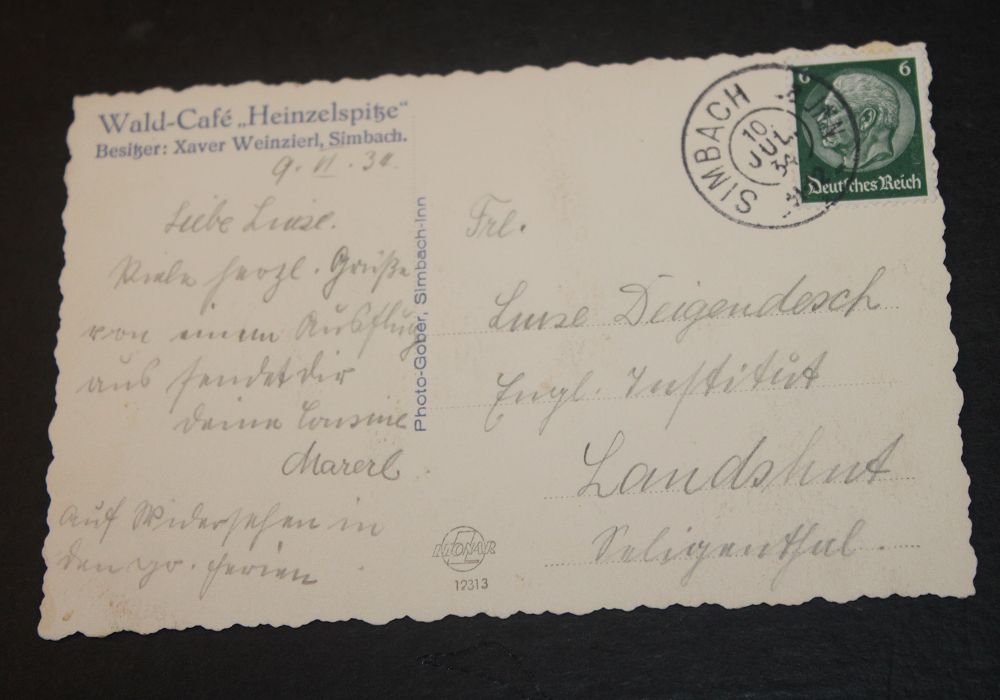 Wald-Café „Heinzelspitze“
Besitzer: Xaver Weinzierl, Simbach.
9. VI. 34.
Liebe Luise.
Viele herzl. Grüße
von einem Ausflug
aus sendet dir
deine Cousine
Marerl.
Auf Widersehen in
den gr. Ferien
Photo-Gober, Simbach-Inn
LMONAR
12313
SIMBACH
10
JUL.
34
6
6
Deutsches Reich
Frl.
Luise Deigendesch
Engl. Institut
Landshut
Seligenthal.